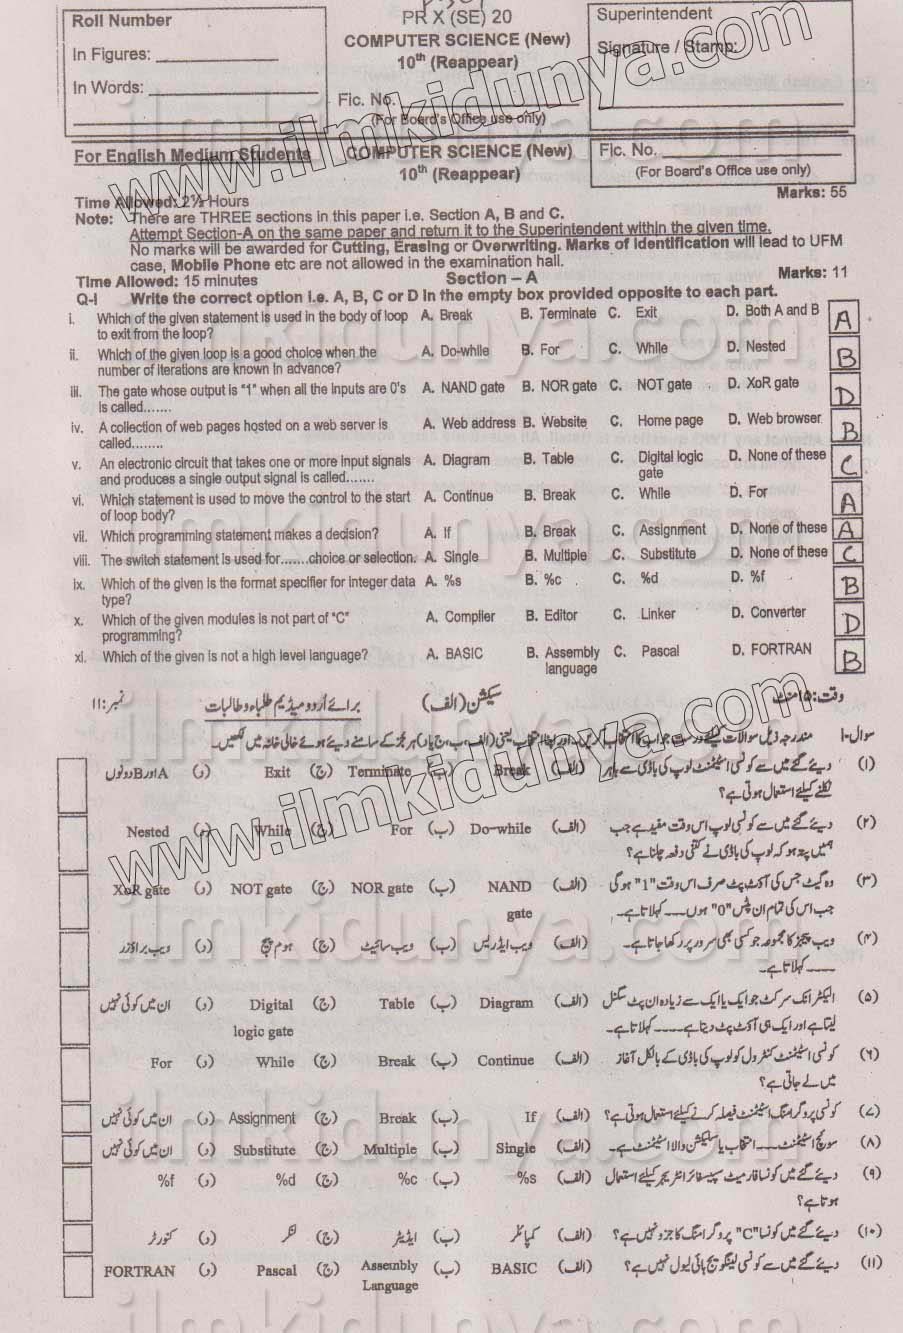 PR X (SE) 20
Roll Number
In Figures:
In Words:
COMPUTER SCIENCE (New)
10th (Reappear)
Fic. No.
(For Board's Office use only)
Superintendent
Signature / Stamp:
For English Medium Students
COMPUTER SCIENCE (New)
10th (Reappear)
Fic. No.
(For Board's Office use only)
Time Allowed: 2½ Hours
Marks: 55
Note: There are THREE sections in this paper i.e. Section A, B and C.
Attempt Section-A on the same paper and return it to the Superintendent within the given time.
No marks will be awarded for Cutting, Erasing or Overwriting. Marks of Identification will lead to UFM
case, Mobile Phone etc are not allowed in the examination hall.
Time Allowed: 15 minutes Section – A Marks: 11
Q-I Write the correct option i.e. A, B, C or D in the empty box provided opposite to each part.
i. Which of the given statement is used in the body of loop A. Break B. Terminate C. Exit D. Both A and B A
to exit from the loop?
ii. Which of the given loop is a good choice when the A. Do-while B. For C. While D. Nested B
number of iterations are known in advance?
iii. The gate whose output is "1" when all the inputs are 0's A. NAND gate B. NOR gate C. NOT gate D. XoR gate D
is called.......
iv. A collection of web pages hosted on a web server is A. Web address B. Website C. Home page D. Web browser B
called........
v. An electronic circuit that takes one or more input signals A. Diagram B. Table C. Digital logic D. None of these C
and produces a single output signal is called....... gate
vi. Which statement is used to move the control to the start A. Continue B. Break C. While D. For A
of loop body?
vii. Which programming statement makes a decision? A. If B. Break C. Assignment D. None of these A
viii. The switch statement is used for.......choice or selection. A. Single B. Multiple C. Substitute D. None of these C
ix. Which of the given is the format specifier for integer data A. %s B. %c C. %d D. %f B
type?
x. Which of the given modules is not part of "C" A. Compiler B. Editor C. Linker D. Converter D
programming?
xi. Which of the given is not a high level language? A. BASIC B. Assembly C. Pascal D. FORTRAN B
language
وقت: ۱۵ منٹ سیکشن (الف) برائے اُردو میڈیم طلباء و طالبات نمبر: ۱۱
سوال-۱ مندرجہ ذیل سوالات کیلئے درست جواب کا انتخاب کریں۔ اور اپنا انتخاب یعنی (الف، ب، ج یا د) ہر جُز کے سامنے دیئے ہوئے خالی خانہ میں لکھیں۔
(۱) دیئے گئے میں سے کونسی اسٹیٹمنٹ لوپ کی باڈی سے باہر (الف) Break (ب) Terminate (ج) Exit (د) A اور B دونوں
نکلنے کیلئے استعمال ہوتی ہے؟
(۲) دیئے گئے میں سے کونسی لوپ اس وقت مفید ہے جب (الف) Do-while (ب) For (ج) While (د) Nested
ہمیں پتہ ہو کہ لوپ کی باڈی نے کتنی دفعہ چلنا ہے؟
(۳) وہ گیٹ جس کی آؤٹ پٹ صرف اس وقت "1" ہوگی (الف) NAND (ب) NOR gate (ج) NOT gate (د) XoR gate
جب اس کی تمام ان پٹس "0" ہوں ۔۔۔۔ کہلاتا ہے۔ gate
(۴) ویب پیجز کا مجموعہ جو کسی بھی سرور پر رکھا جاتا ہے۔ (الف) ویب ایڈریس (ب) ویب سائیٹ (ج) ہوم پیج (د) ویب براؤزر
۔۔۔۔ کہلاتا ہے۔
(۵) الیکٹرانک سرکٹ جو ایک یا ایک سے زیادہ ان پٹ سگنل (الف) Diagram (ب) Table (ج) Digital (د) ان میں کوئی نہیں
لیتا ہے اور ایک ہی آؤٹ پٹ دیتا ہے ۔۔۔۔ کہلاتا ہے۔ logic gate
(۶) کونسی اسٹیٹمنٹ کنٹرول کو لوپ کی باڈی کے بالکل آغاز (الف) Continue (ب) Break (ج) While (د) For
میں لے جاتی ہے؟
(۷) کونسی پروگرامنگ اسٹیٹمنٹ فیصلہ کرنے کیلئے استعمال ہوتی ہے؟ (الف) If (ب) Break (ج) Assignment (د) ان میں کوئی نہیں
(۸) سوئچ اسٹیٹمنٹ ۔۔۔۔ انتخاب یا سلیکشن والا اسٹیٹمنٹ ہے۔ (الف) Single (ب) Multiple (ج) Substitute (د) ان میں کوئی نہیں
(۹) دیئے گئے میں کونسا فارمیٹ سپیسفائر انٹیجر کیلئے استعمال (الف) %s (ب) %c (ج) %d (د) %f
ہوتا ہے؟
(۱۰) دیئے گئے میں کونسا "C" پروگرامنگ کا جزو نہیں ہے؟ (الف) کمپائلر (ب) ایڈیٹر (ج) لنکر (د) کنورٹر
(۱۱) دیئے گئے میں سے کونسی لینگویج ہائی لیول نہیں ہے؟ (الف) BASIC (ب) Assembly (ج) Pascal (د) FORTRAN
Language
www.ilmkidunya.com
www.ilmkidunya.com
ilmkidunya.com
ilmkidunya.com
ilmkidunya.com
ilmkidunya.com
ilmkidunya.com
ilmkidunya.com
ilmkidunya.com